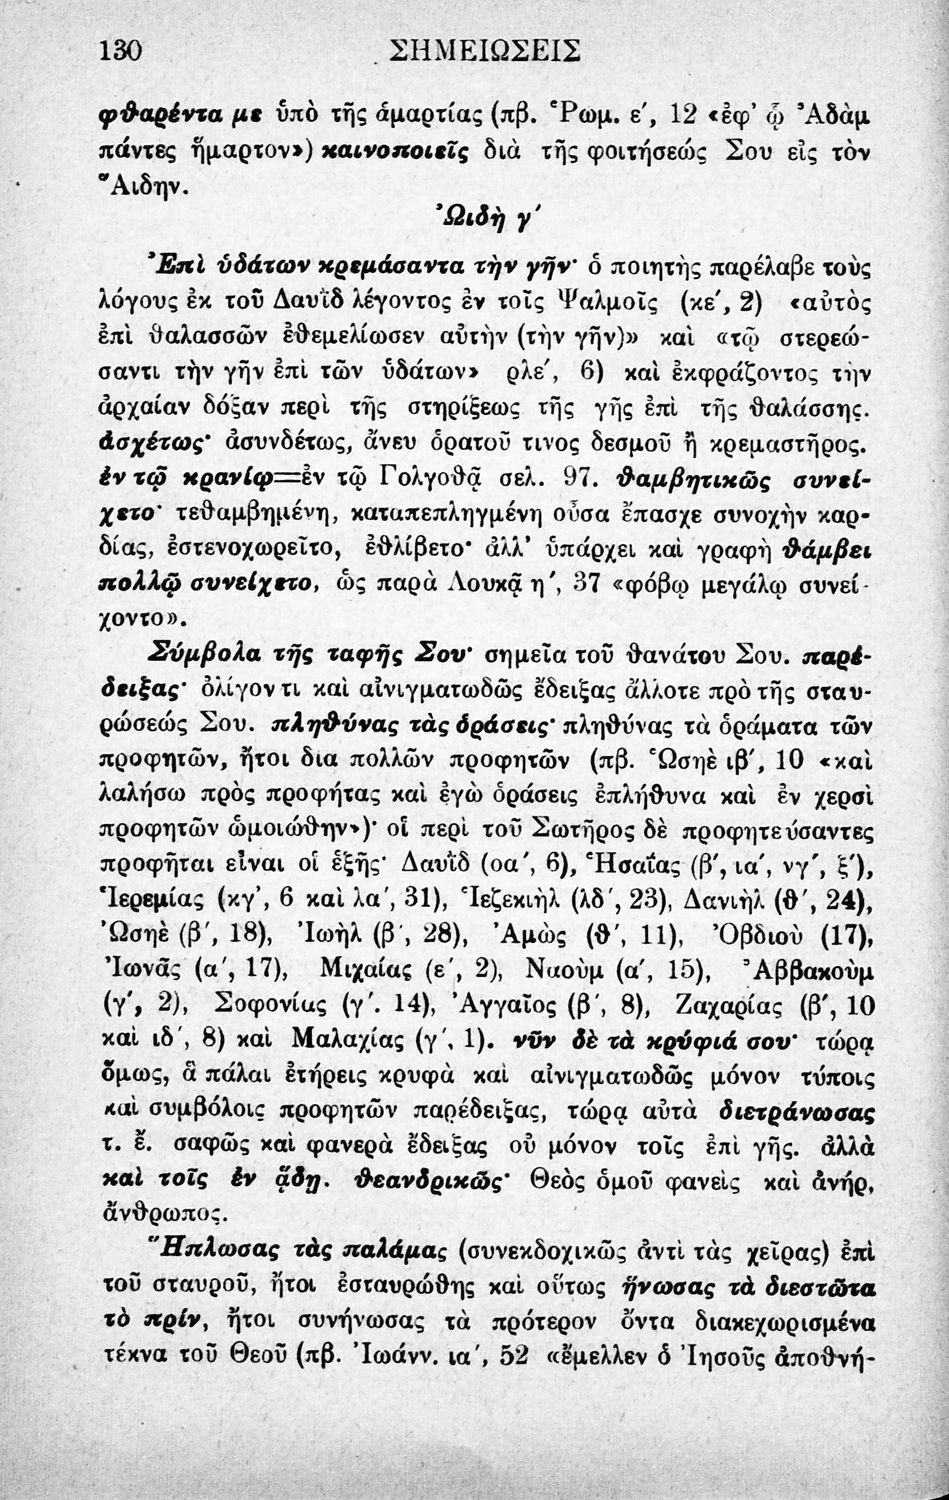 130 ΣΗΜΕΙΩΣΕΙΣ
φθαρέντα με ὑπὸ τῆς ἁμαρτίας (πβ. Ῥωμ. ε΄, 12 «ἐφ’ ᾧ Ἀδὰμ
πάντες ἥμαρτον») καινοποιεῖς διὰ τῆς φοιτήσεώς Σου εἰς τὸν
Ἅιδην.
ᾨδὴ γ΄
Ἐπὶ ὑδάτων κρεμάσαντα τὴν γῆν· ὁ ποιητὴς παρέλαβε τοὺς
λόγους ἐκ τοῦ Δαυῒδ λέγοντος ἐν τοῖς Ψαλμοῖς (κε΄, 2) «αὐτὸς
ἐπὶ θαλασσῶν ἐθεμελίωσεν αὐτὴν (τὴν γῆν)» καὶ «τῷ στερεώ-
σαντι τὴν γῆν ἐπὶ τῶν ὑδάτων» ρλε΄, 6) καὶ ἐκφράζοντος τὴν
ἀρχαίαν δόξαν περὶ τῆς στηρίξεως τῆς γῆς ἐπὶ τῆς θαλάσσης.
ἀσχέτως· ἀσυνδέτως, ἄνευ ὁρατοῦ τινος δεσμοῦ ἢ κρεμαστῆρος.
ἐν τῷ κρανίῳ=ἐν τῷ Γολγοθᾷ σελ. 97. θαμβητικῶς συνεί-
χετο· τεθαμβημένη, καταπεπληγμένη οὖσα ἔπασχε συνοχὴν καρ-
δίας, ἐστενοχωρεῖτο, ἐθλίβετο· ἀλλ’ ὑπάρχει καὶ γραφὴ θάμβει
πολλῷ συνείχετο, ὡς παρὰ Λουκᾷ η΄, 37 «φόβῳ μεγάλῳ συνεί-
χοντο».
Σύμβολα τῆς ταφῆς Σου· σημεῖα τοῦ θανάτου Σου. παρέ-
δειξας· ὀλίγον τι καὶ αἰνιγματωδῶς ἔδειξας ἄλλοτε πρὸ τῆς σταυ-
ρώσεώς Σου. πληθύνας τὰς ὁράσεις· πληθύνας τὰ ὁράματα τῶν
προφητῶν, ἤτοι δια πολλῶν προφητῶν (πβ. Ὡσηὲ ιβ΄, 10 «καὶ
λαλήσω πρὸς προφήτας καὶ ἐγὼ ὁράσεις ἐπλήθυνα καὶ ἐν χερσὶ
προφητῶν ὡμοιώθην»)· οἱ περὶ τοῦ Σωτῆρος δὲ προφητεύσαντες
προφῆται εἶναι οἱ ἑξῆς· Δαυῒδ (οα΄, 6), Ἡσαΐας (β΄, ια΄, νγ΄, ξ΄),
Ἱερεμίας (κγ’, 6 καὶ λα΄, 31), Ἰεζεκιὴλ (λδ΄, 23), Δανιὴλ (θ΄, 24),
Ὡσηὲ (β΄, 18), Ἰωὴλ (β΄, 28), Ἀμὼς (θ΄, 11), Ὀβδιοὺ (17),
Ἰωνᾶς (α΄, 17), Μιχαίας (ε΄, 2), Ναοὺμ (α΄, 15), Ἀββακοὺμ
(γ΄, 2), Σοφονίας (γ΄. 14), Ἀγγαῖος (β΄, 8), Ζαχαρίας (β΄, 10
καὶ ιδ΄, 8) καὶ Μαλαχίας (γ΄, 1). νῦν δὲ τὰ κρύφιά σου· τώρα
ὅμως, ἃ πάλαι ἐτήρεις κρυφὰ καὶ αἰνιγματωδῶς μόνον τύποις
καὶ συμβόλοις προφητῶν παρέδειξας, τώρα αὐτὰ διετράνωσας
τ. ἔ. σαφῶς καὶ φανερὰ ἔδειξας οὐ μόνον τοῖς ἐπὶ γῆς. ἀλλὰ
καὶ τοῖς ἐν ᾅδῃ. θεανδρικῶς· Θεὸς ὁμοῦ φανεὶς καὶ ἀνήρ,
ἄνθρωπος.
Ἥπλωσας τὰς παλάμας (συνεκδοχικῶς ἀντὶ τὰς χεῖρας) ἐπὶ
τοῦ σταυροῦ, ἤτοι ἐσταυρώθης καὶ οὕτως ἥνωσας τὰ διεστῶτα
τὸ πρίν, ἤτοι συνήνωσας τὰ πρότερον ὄντα διακεχωρισμένα
τέκνα τοῦ Θεοῦ (πβ. Ἰωάνν. ια΄, 52 «ἔμελλεν ὁ Ἰησοῦς ἀποθνή-